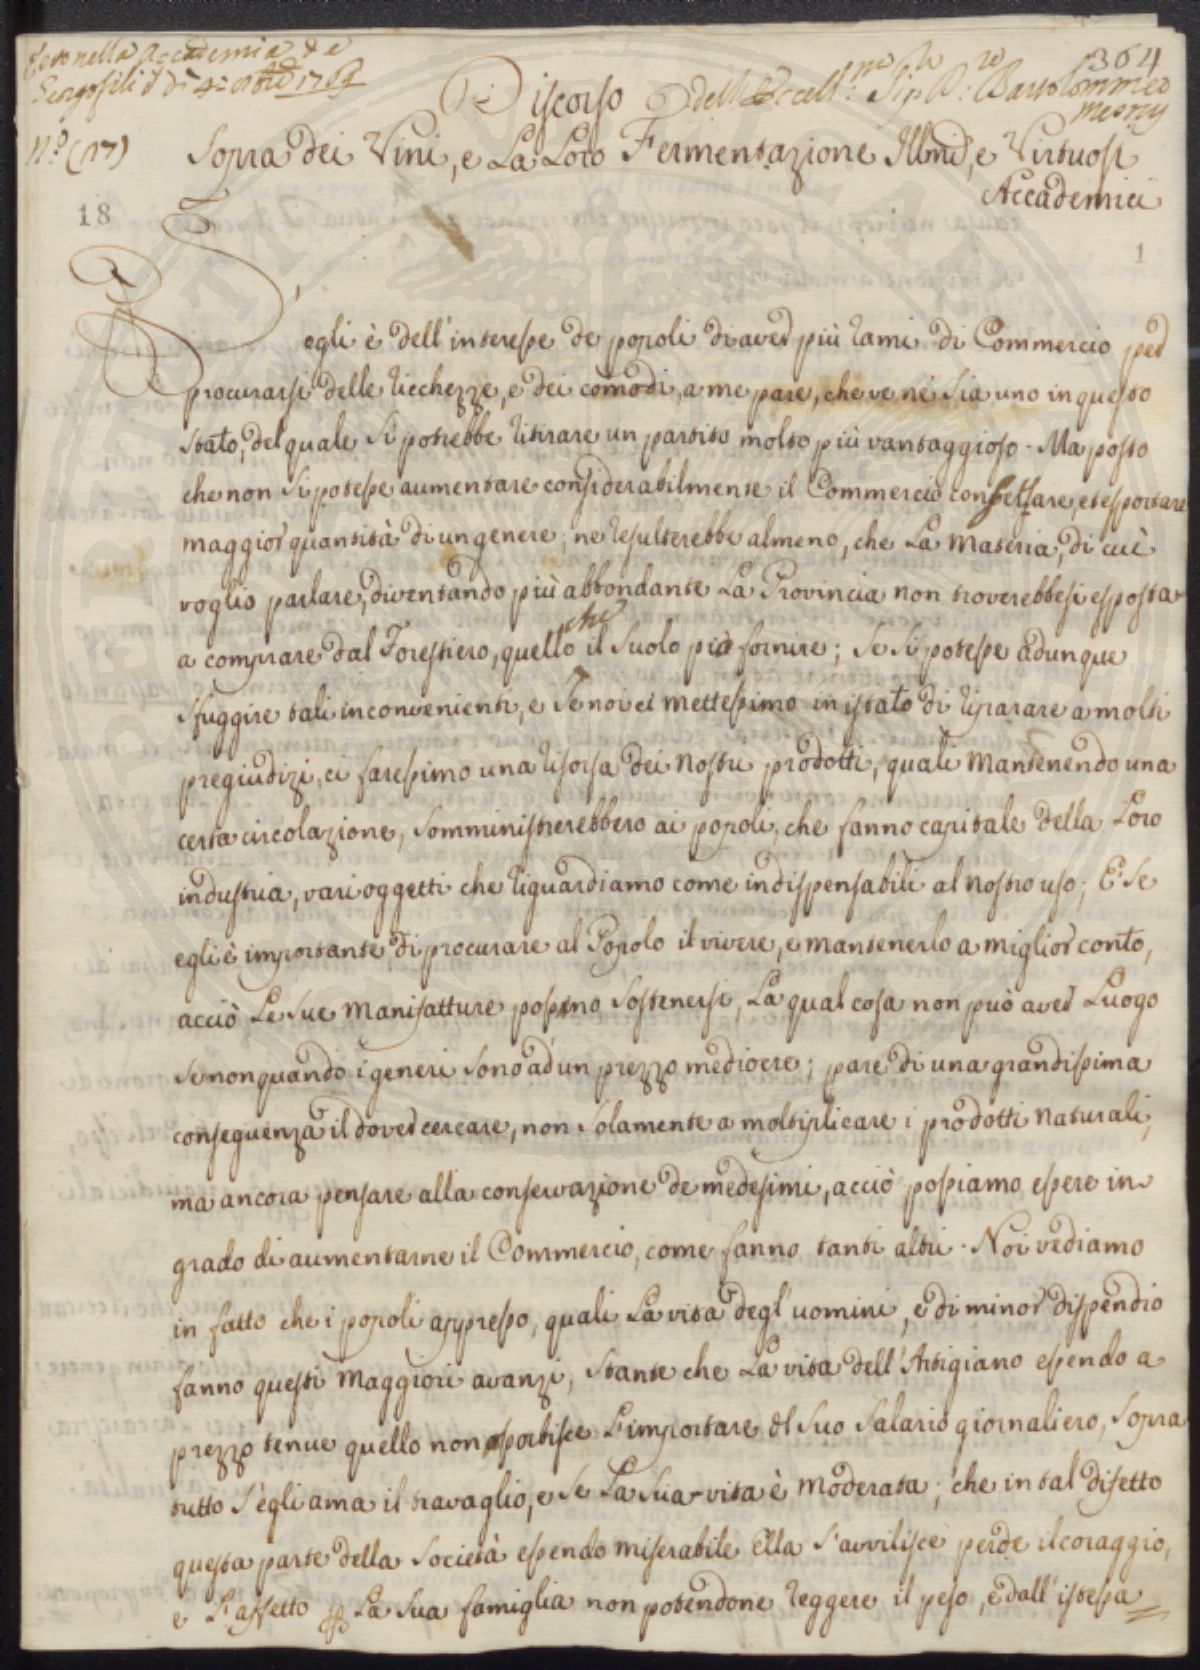 Letto nella Accademia de
Georgofili il dì 4 1769
364
Discorso dell' Eccell.mo Sig.re D.re Bartolommeo
Mesny
N.o (17)
Sopra dei Vini, e La Loro Fermentazione Illmi, e Virtuosi
Accademici
18
1
Se egli è dell'interesse de popoli di aver più rami di Commercio per
procurarsi delle ricchezze, e dei comodi, a me pare, che ve ne sia uno in questo
stato, del quale si potrebbe ritirare un partito molto più vantaggioso. Ma posto
che non si potesse aumentare considerabilmente il Commercio con, et esportare
maggior quantità di un genere; ne resulterebbe almeno, che La materia, di cui
voglio parlare, diventando più abbondante La Provincia non troverebbesi esposta
a comprare dal Forestiero, quello che il suolo può fornire; se si potesse adunque
sfuggire tali inconvenienti, e se noi ci mettessimo in istato di riparare a molti
pregiudizi, ci faressimo una risorsa dei nostri prodotti, quali mantenendo una
certa circolazione, somministrerebbero ai popoli, che fanno capitale della Loro
industria, vari oggetti che riguardiamo come indispensabili al nostro uso; E se
egli è importante di procurare al Popolo il vivere, e mantenerlo a miglior conto,
acciò Le sue manifatture possino sostenersi, La qual cosa non può aver Luogo
se non quando i generi sono ad un prezzo mediocre; pare di una grandissima
conseguenza il dover cercare, non solamente a moltiplicare i prodotti naturali,
ma ancora pensare alla conservazione de medesimi, acciò possiamo essere in
grado di aumentarne il Commercio, come fanno tanti altri. Noi vediamo
in fatto che i popoli appresso, quali La vita degl'uomini, è di minor dispendio
fanno questi maggiori avanzi, stante che La vita dell'Artigiano essendo a
prezzo tenue quello non assorbisce L'importare del suo salario giornaliero, sopra
tutto s'egli ama il travaglio, e se La sua vita è moderata; che in tal difetto
questa parte della società essendo miserabile ella s'avvilisce perde il coraggio,
e L'affetto per La sua famiglia non potendone reggere il peso, e dall'istessa